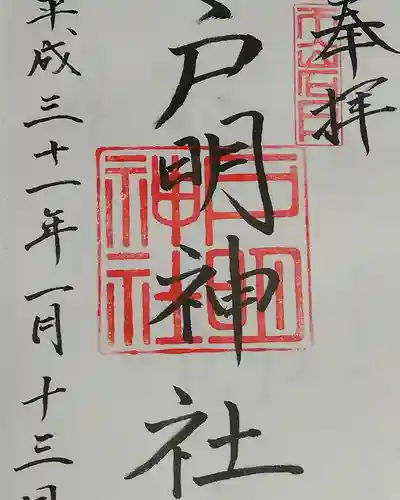 奉拝
戸明神社
平成三十一年一月十三日
戸明
神社